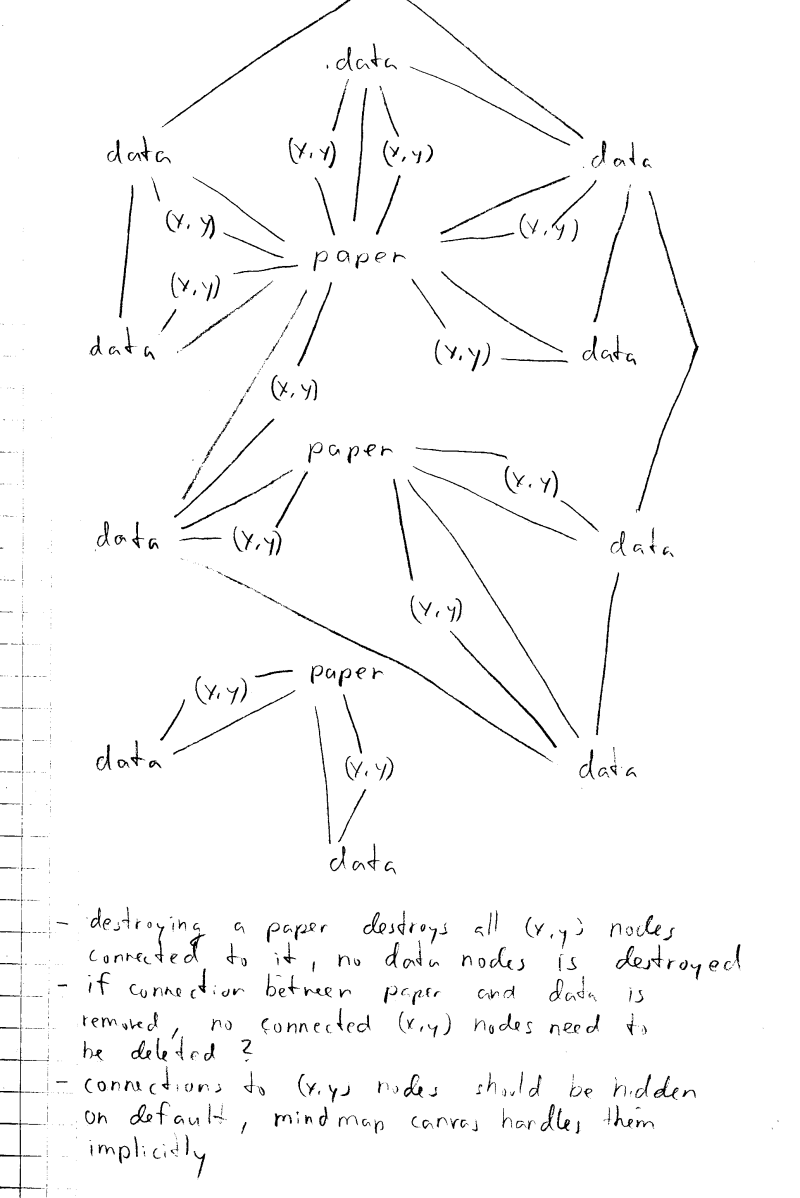 data
data
data
(x,y)
(x,y)
(x,y)
(x,y)
paper
(x,y)
data
(x,y)
data
(x,y)
paper
(x,y)
data
(x,y)
data
(x,y)
paper
(x,y)
data
(x,y)
data
data
- destroying a paper destroys all (x,y) nodes
connected to it, no data nodes is destroyed
- if connection between paper and data is
removed, no connected (x,y) nodes need to
be deleted ?
- connections to (x,y) nodes should be hidden
on default, mindmap canvas handles them
implicitly